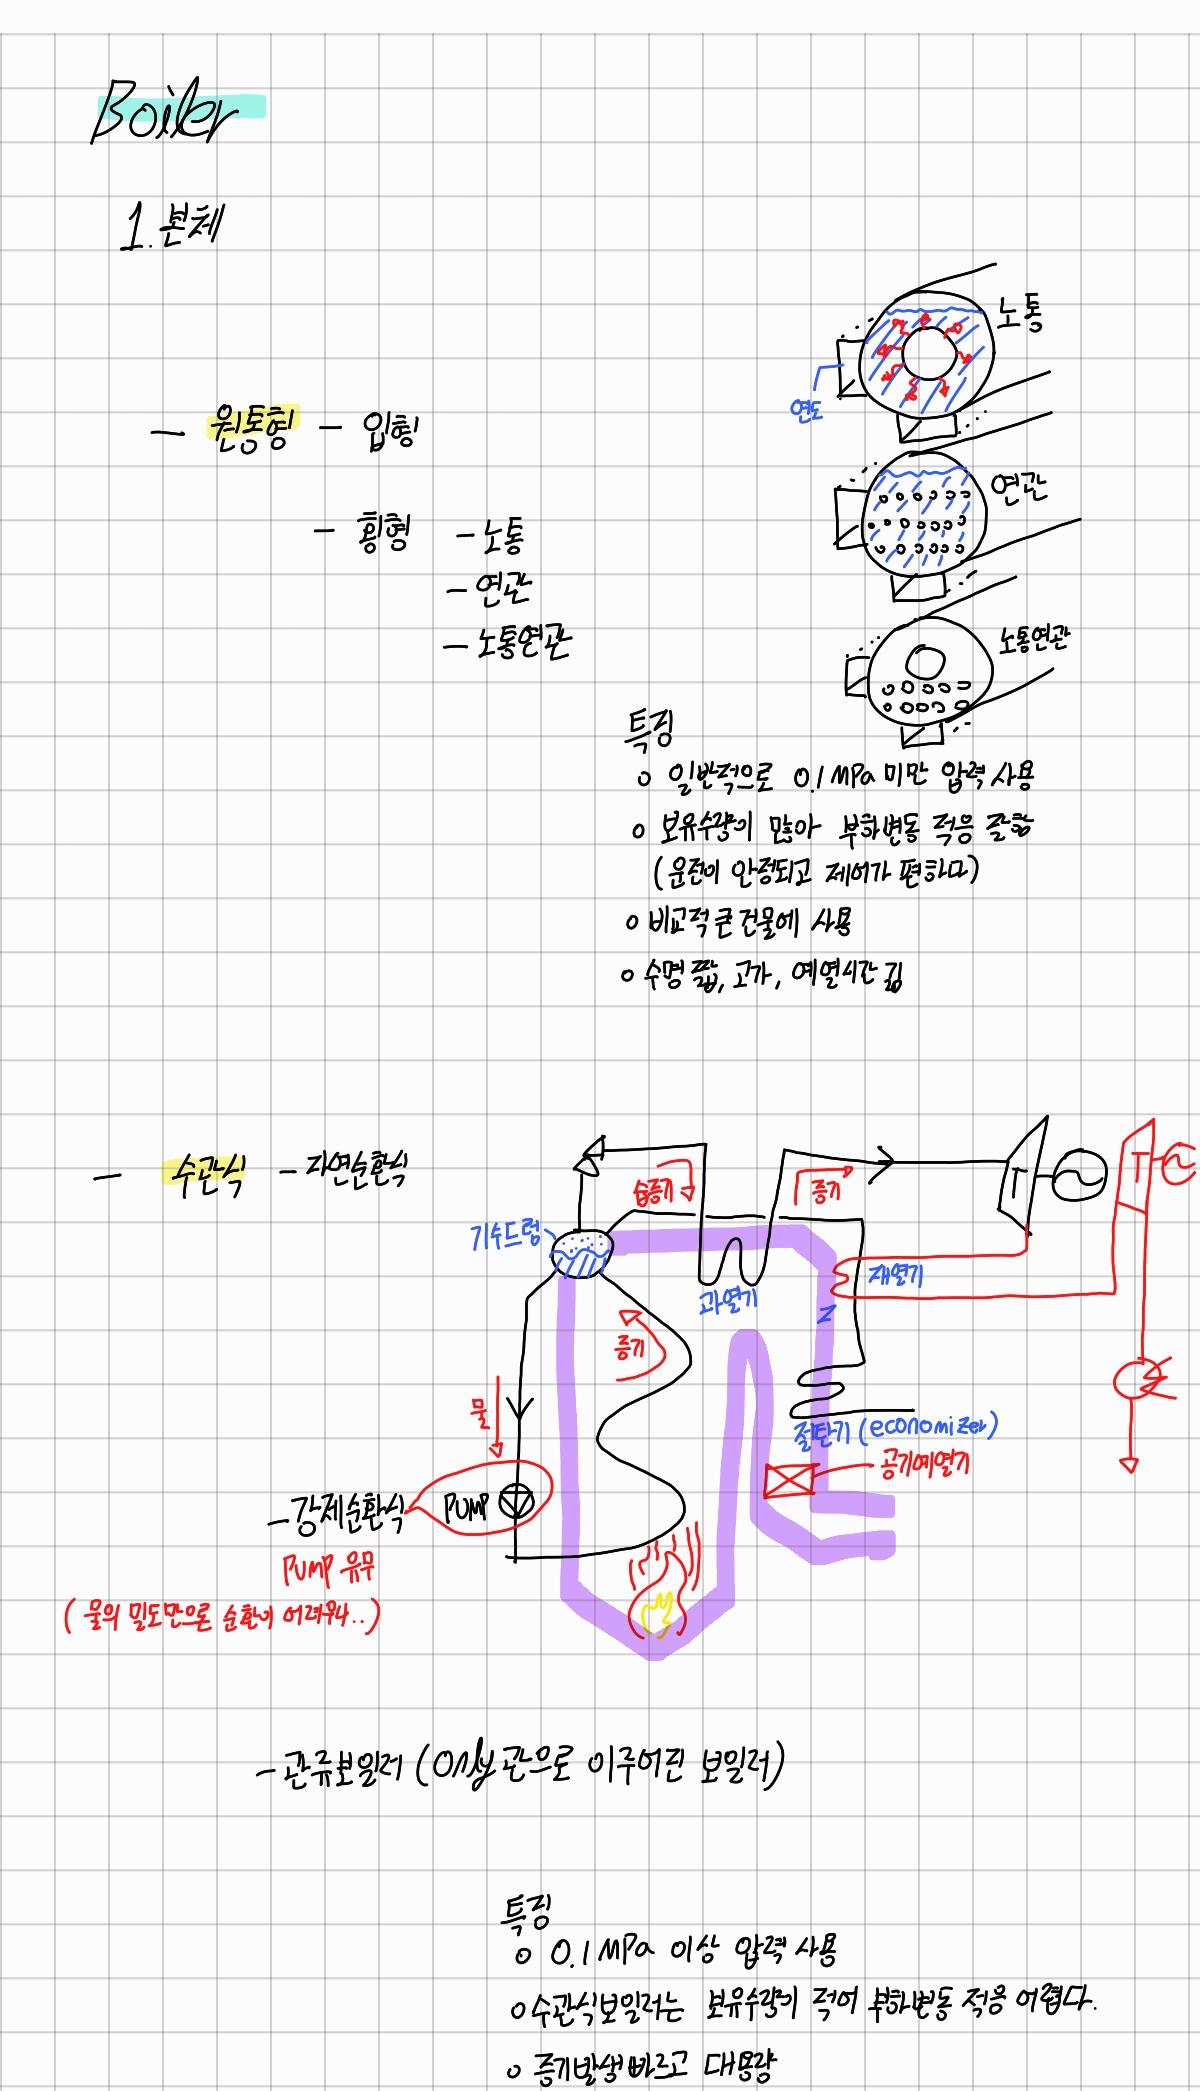 Boiler
1. 본체
노통
연도
- 원통형 - 입형
연관
- 횡형 - 노통
- 연관
- 노통연관
노통연관
특징
o 일반적으로 0.1 MPa 미만 압력 사용
o 보유수량이 많아 부하변동 적응 잘함
(운전이 안정되고 제어가 편하다)
o 비교적 큰 건물에 사용
o 수명 짧, 고가, 예열시간 긺
- 수관식 - 자연순환식
습증기
증기
T
T
기수드럼
과열기
재열기
증기
물
절탄기 (economizer)
공기예열기
- 강제순환식
PUMP
PUMP 유무
(물의 밀도만으론 순환이 어려우니..)
- 관류보일러 (only 관으로 이루어진 보일러)
특징
o 0.1 MPa 이상 압력 사용
o 수관식보일러는 보유수량이 적어 부하변동 적응 어렵다.
o 증기발생 빠르고 대용량